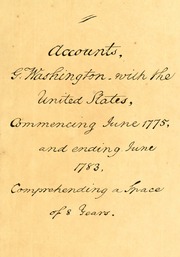 Accounts,
G. Washington with the
United States,
Commencing June 1775,
and ending June
1783,
Comprehending a Space
of 8 Years.